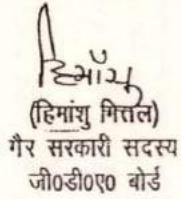 हिमाँशु
(हिमांशु मित्तल)
गैर सरकारी सदस्य
जी०डी०ए० बोर्ड